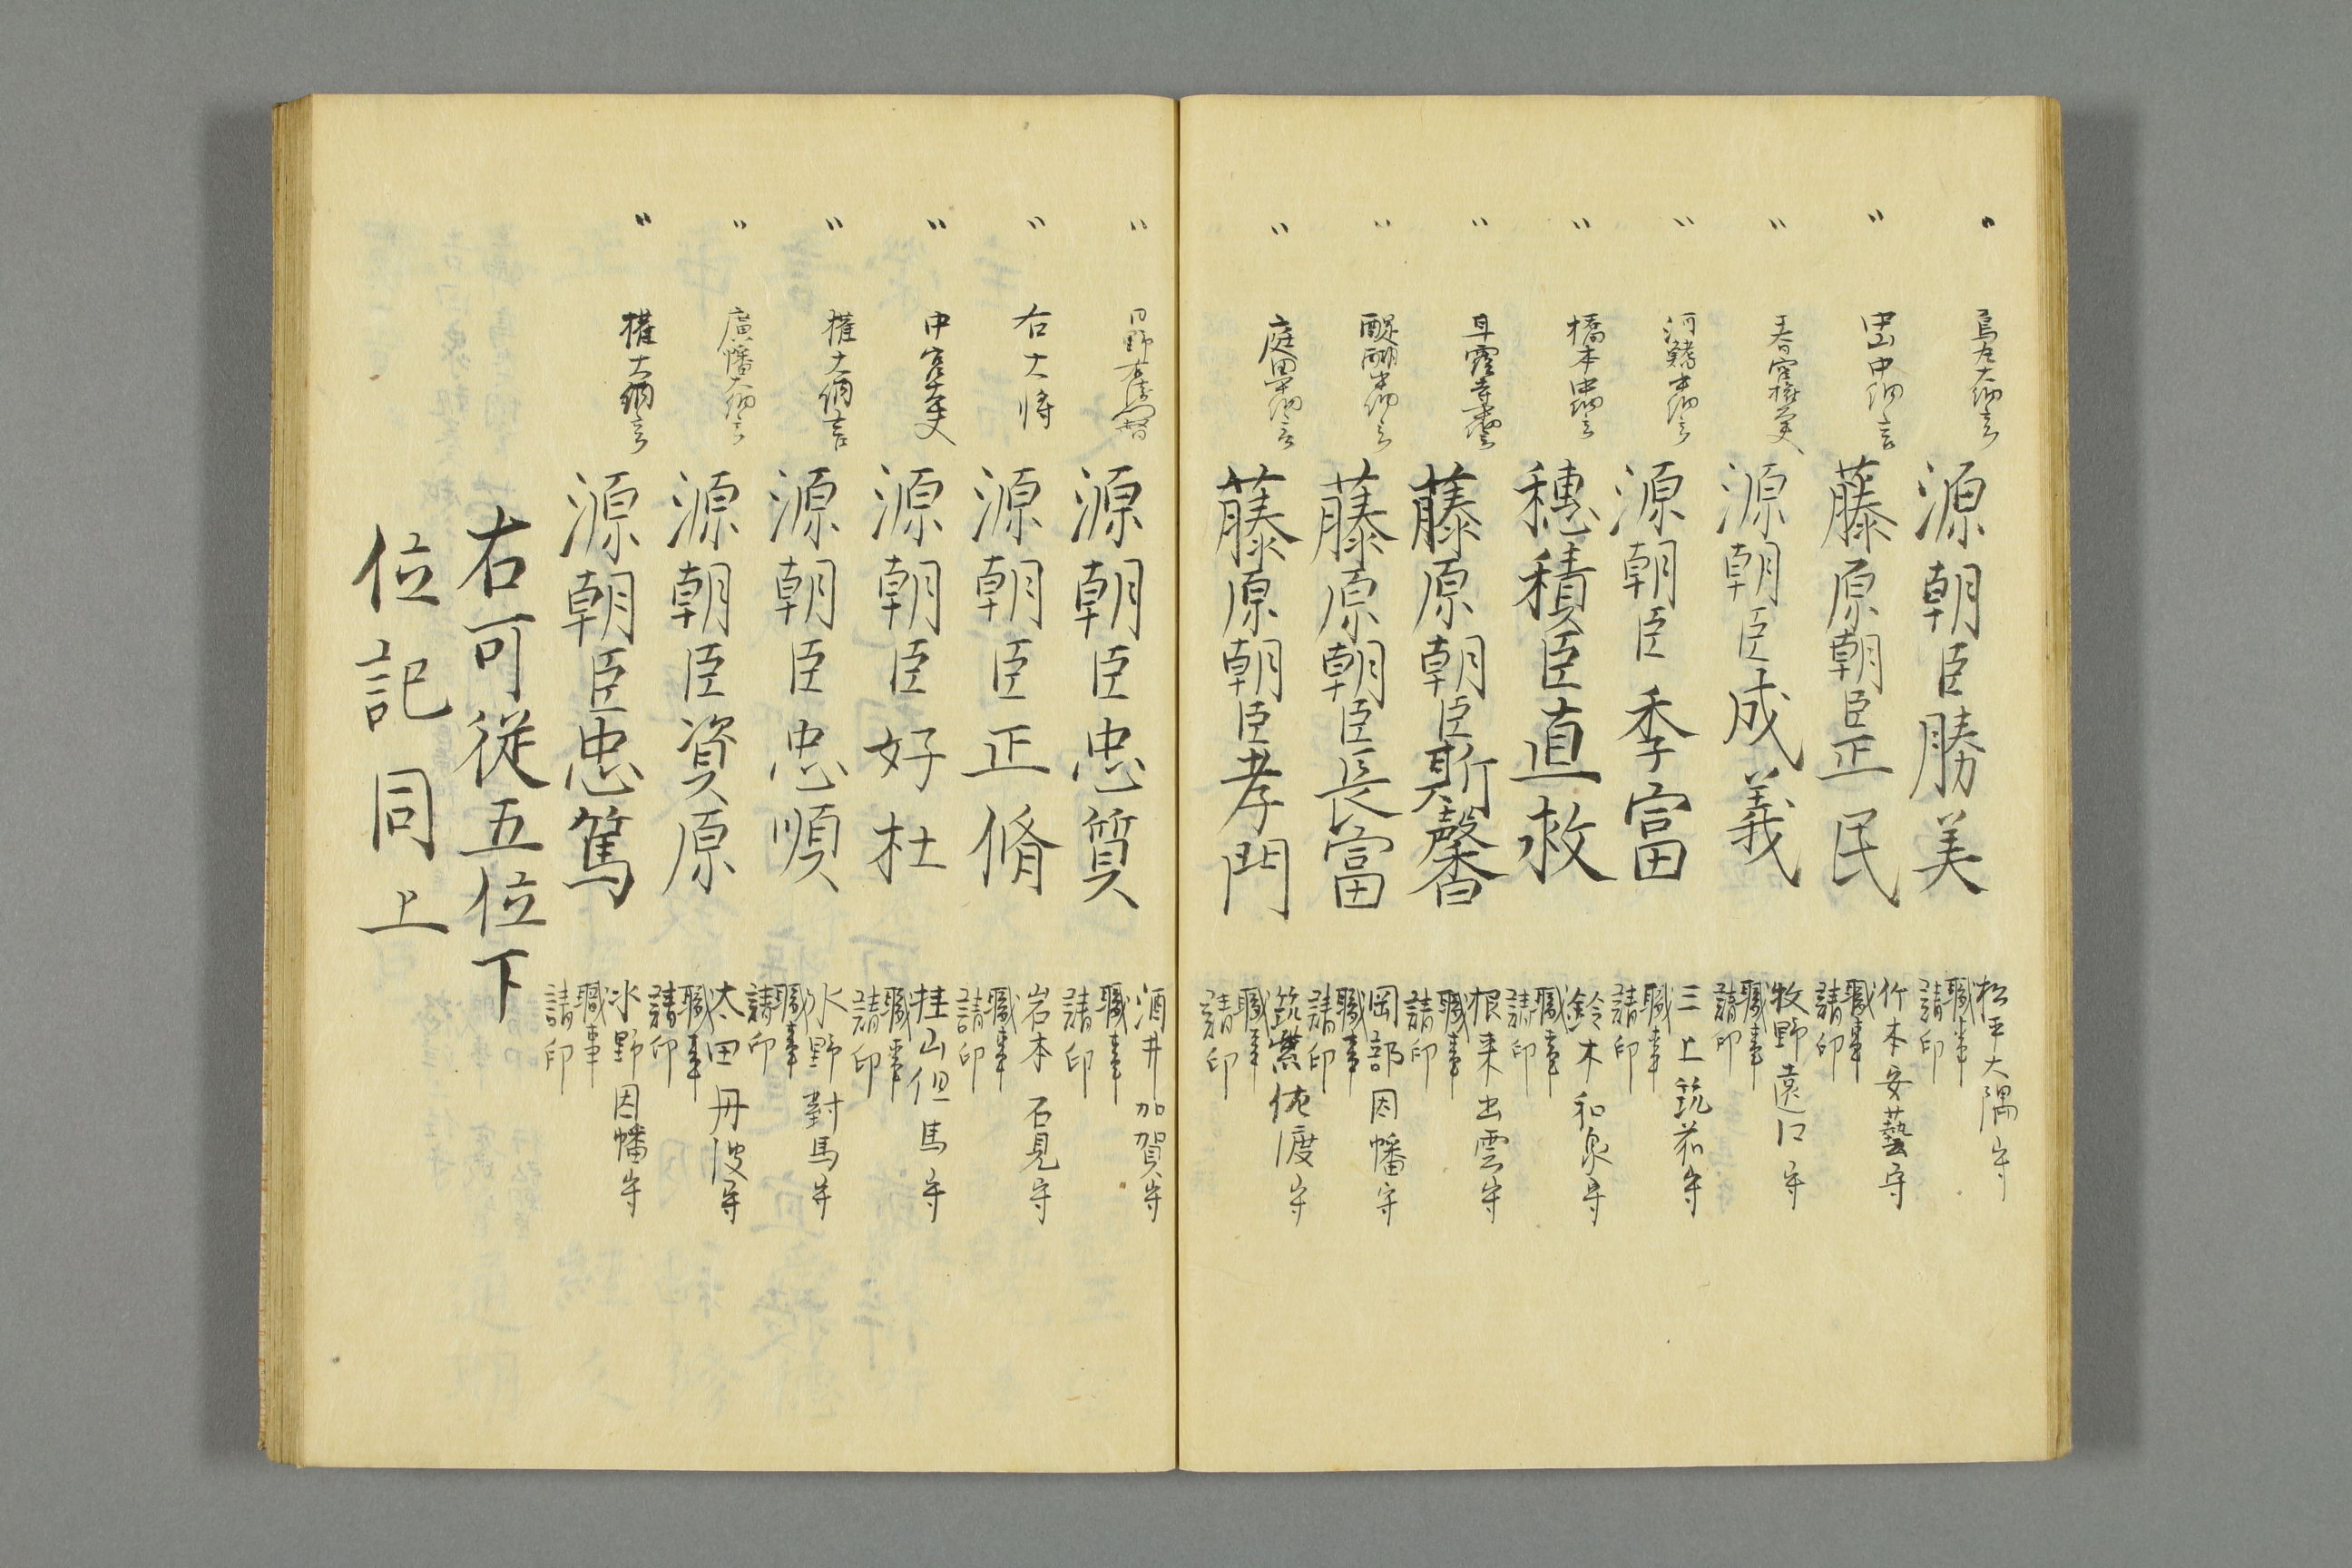 〃 烏丸大納言 源朝臣勝美 松平大隅守
職事
請印
〃 中山中納言 藤原朝臣正民 竹本安藝守
職事
請印
〃 春宮権大夫 源朝臣成義 牧野遠江守
職事
請印
〃 河鰭中納言 源朝臣季富 三上筑前守
職事
請印
〃 橋本中納言 穗積臣直救 鈴木和泉守
職事
請印
〃 甘露寺中納言 藤原朝臣斯馨 根来出雲守
職事
請印
〃 醍醐中納言 藤原朝臣長富 岡部因幡守
職事
請印
〃 庭田中納言 藤原朝臣孝門 筑紫佐渡守
職事
請印
〃 日野右衛門督 源朝臣忠質 酒井加賀守
職事
請印
〃 右大将 源朝臣正脩 岩本石見守
職事
請印
〃 中宮大夫 源朝臣好杜 桂山但馬守
職事
請印
〃 権大納言 源朝臣忠順 水野對馬守
職事
請印
〃 廣幡大納言 源朝臣資原 太田丹波守
職事
請印
〃 権大納言 源朝臣忠篤 水野因幡守
職事
請印
右可從五位下
位記同上